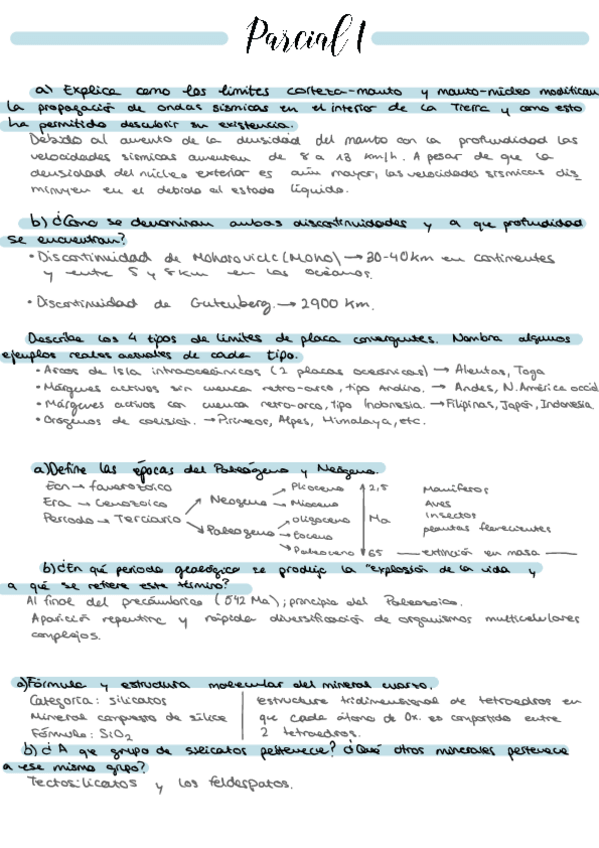 Parcial 1
a) Explica como los limites corteza-manto y manto-núcleo modifican
la propagación de ondas sísmicas en el interior de la Tierra y como esto
ha permitido descubrir su existencia.
Debido al aumento de la densidad del manto con la profundidad las
velocidades sísmicas aumentan de 8 a 13 km/h. A pesar de que la
densidad del núcleo exterior es aún mayor, las velocidades sísmicas dis
minuyen en el debido al estado líquido.
b) ¿Cómo se denominan ambas discontinuidades y a que profundidad
se encuentran?
• Discontinuidad de Mohorovicic (Moho) → 30-40 km en continentes
y entre 5 y 8 km en los océanos.
• Discontinuidad de Gutenberg. → 2900 km.
Describe los 4 tipos de limites de placa convergentes. Nombra algunos
ejemplos reales actuales de cada tipo.
• Arcos de Isla intraoceánicos (2 placas oceánicas) → Aleutas, Toga
• Márgenes activos sin cuenca retro-arco, tipo Andino. → Andes, N.América occid
• Márgenes activos con cuenca retro-arco, tipo Indonesia. → Filipinas, Japón, Indonesia.
• Orógenos de colisión. → Pirineos, Alpes, Himalaya, etc.
a) Define las épocas del Paleógeno y Neógeno.
Eon → fanerozoico
Era → Cenozoico
Periodo → Terciario
Neogeno
Plioceno
Mioceno
Paleogeno
Oligoceno
Eoceno
Paleoceno
2,5
Ma
65
Mamíferos
Aves
Insectos
plantas florecientes
extinción en masa
b) ¿En qué periodo geológico se produjo la "explosión de la vida y
a qué se refiere este término?
Al final del precámbrico (542 Ma); principio del Paleozoico.
Aparición repentina y rápida diversificación de organismos multicelulares
complejos.
a) Fórmula y estructura molecular del mineral cuarzo.
Categoría: silicatos
Mineral compuesto de sílice
Fórmula: SiO2
estructura tridimensional de tetraedros en
que cada átomo de Ox. es compartido entre
2 tetraedros.
b) ¿A que grupo de silicatos pertenece? ¿Qué otros minerales pertenece
a ese mismo grupo?
Tectosilicatos y los feldespatos.